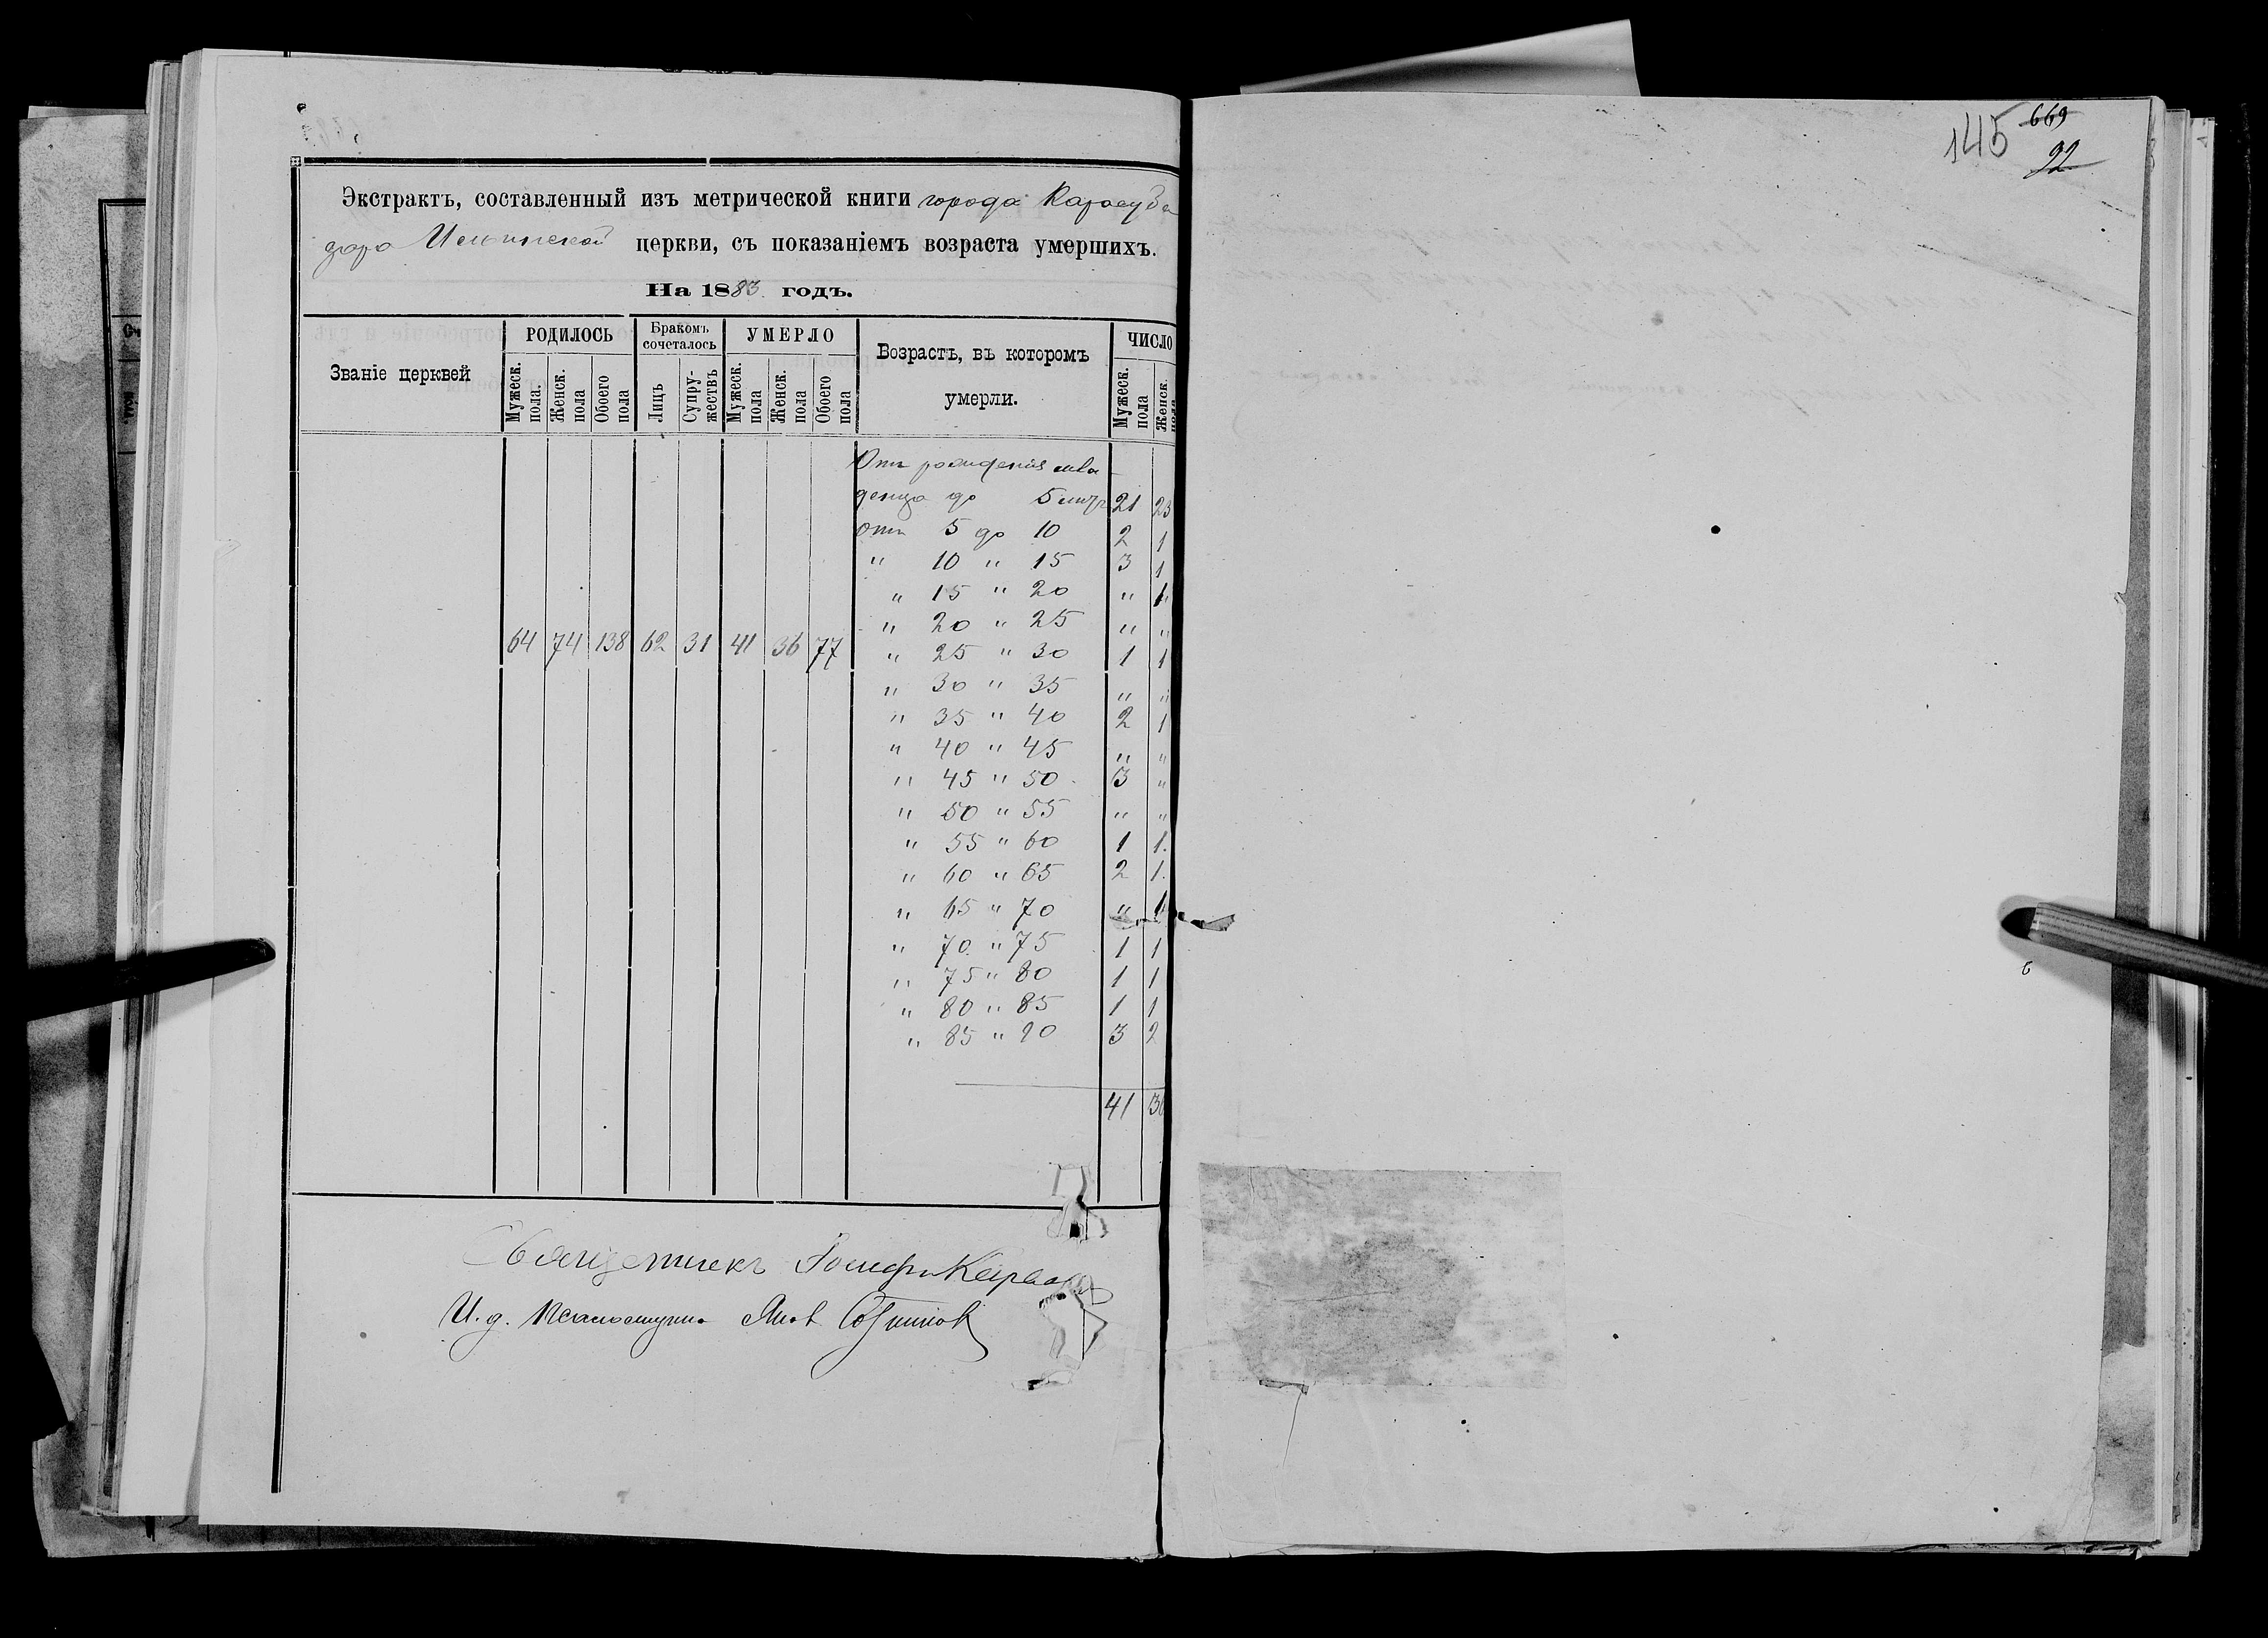 145 669
92
Экстрактъ, составленный изъ метрической книги города Карасуба
зара Ильинской церкви, съ показаніемъ возраста умершихъ.
На 1883 годъ.
Званіе церквей
РОДИЛОСЬ
Мужеск. пола.
Женск. пола
Обоего пола
Бракомъ сочеталось
Лицъ
Супружествъ
УМЕРЛО
Мужеск. пола
Женск. пола
Обоего пола
Возрастъ, въ которомъ
умерли.
ЧИСЛО
Мужеск. пола
Женск. пола
Отъ рожденія мла
денца до 5 лѣтъ 21 23
отъ 5 до 10 2 1
" 10 " 15 3 1
" 15 " 20 " 1
" 20 " 25 " "
64 74 138 62 31 41 36 77
" 25 " 30 1 1
" 30 " 35 " "
" 35 " 40 2 1
" 40 " 45 " "
" 45 " 50 3 "
" 50 " 55 " "
" 55 " 60 1 1.
" 60 " 65 2 1.
" 65 " 70 " 1
" 70 " 75 1 1
" 75 " 80 1 1
" 80 " 85 1 1
" 85 " 90 3 2
41 36
Священникъ Іосифъ
И. д. Псаломщика Яков Сотников